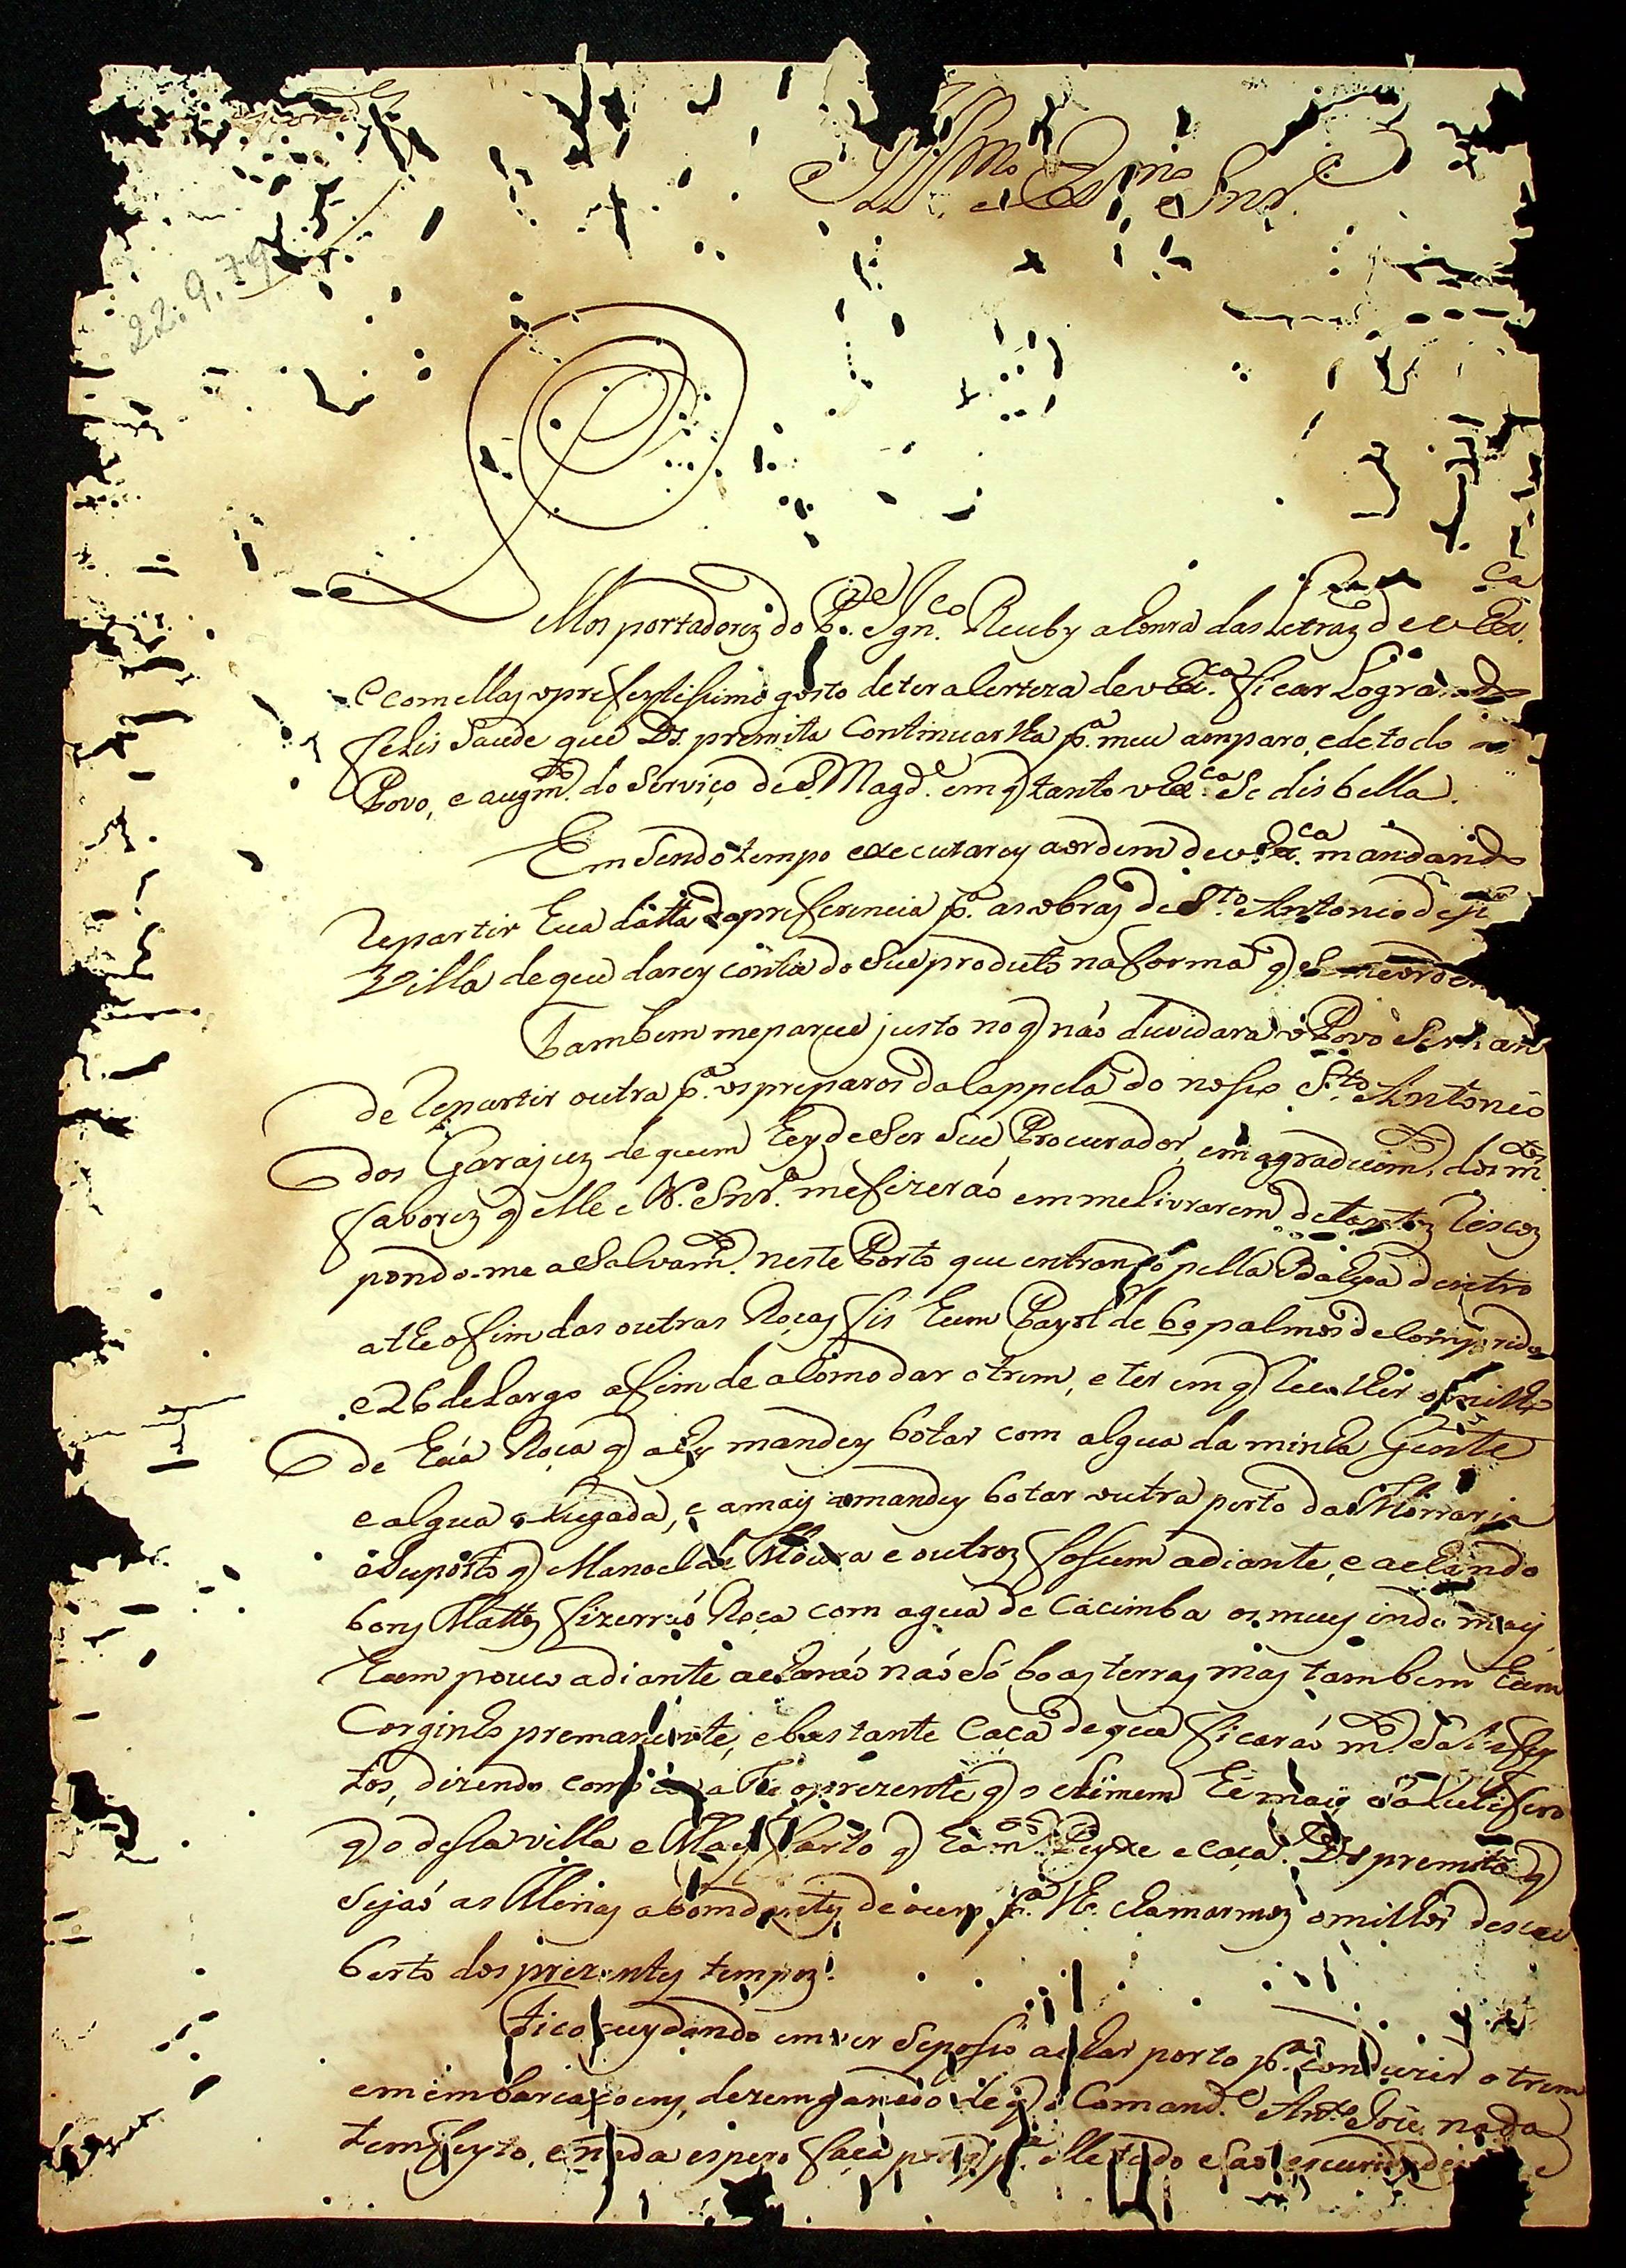 22.9.79
Ill.mo e Ex.mo Snr.
Pellos portadorez do P.e Ign.co Recuby a honra das Letraz de v Ex.ca
e com ellaz o prezesteissimo gosto de ter a certeza de v Ex.ca ficar Logrando
felis Saude que Ds. premita Continuarlha p.a meu amparo, e de todo
Povo, e augm.to do Serviço de S. Mag.de emq tanto v Ex.ca Se dis bella.
Em Sendo tempo executarey a ordem de v Ex.ca mandando
Repartir hua datta de preferencia p.a as obraz de S.to Antonio de
Villa de que darey conta do Seu produto na forma q
Tambem me parece justo no q não duvidara o Povo
de Repartir outra p.a os preparos da Cappela do nosso S.to Antonio
dos Garajuz de quem hey de Ser Seu Procurador, em agradecim.to dos m.tos
favorez q elle e N. Snr.a me fizerão em me livrarem de tantoz Riscoz
pondo-me a Salvam.to neste Porto que entrando pella dentro
athe o fim das outras Roças fis hum Payol de 60 palmos de Comprido
e 26 de Largo afim de acomodar o trem, e ter em q Recolher o milho
de huã Roça q ahy mandey botar com algua da minha Gente
e algua alugada, e a mais mandey botar outra perto da Morraria
e Suposto q Manoel de Moura e outroz fossem adiante, e achando
bons Mattoz fizerão Roça com agua de Cacimba os meus indo mais
hum pouco adiante acharão não Só boas terras mas tambem hum
Corginho premanente, e bastante Caça de que ficarão m.to Satisfey
tos, dizendo como athe o prezente q o Climem hé mais Saluttifero
q o desta villa e Mais farto q há m.tos Peyxe e Caça. D.s premita q
Sejão as Minas abomdantez de ouro p.a lhe clamarmoz o milhor descu
berto dos prezentez tempoz.
Fico cuydando em ver Se posso achar porto p.a conduzir o trem
em embarcaçoens, dezemganado de q o Comand.e Ant.o Joze nada
tem feyto, e nada espero faça porq p.a elle tudo são escuridadez